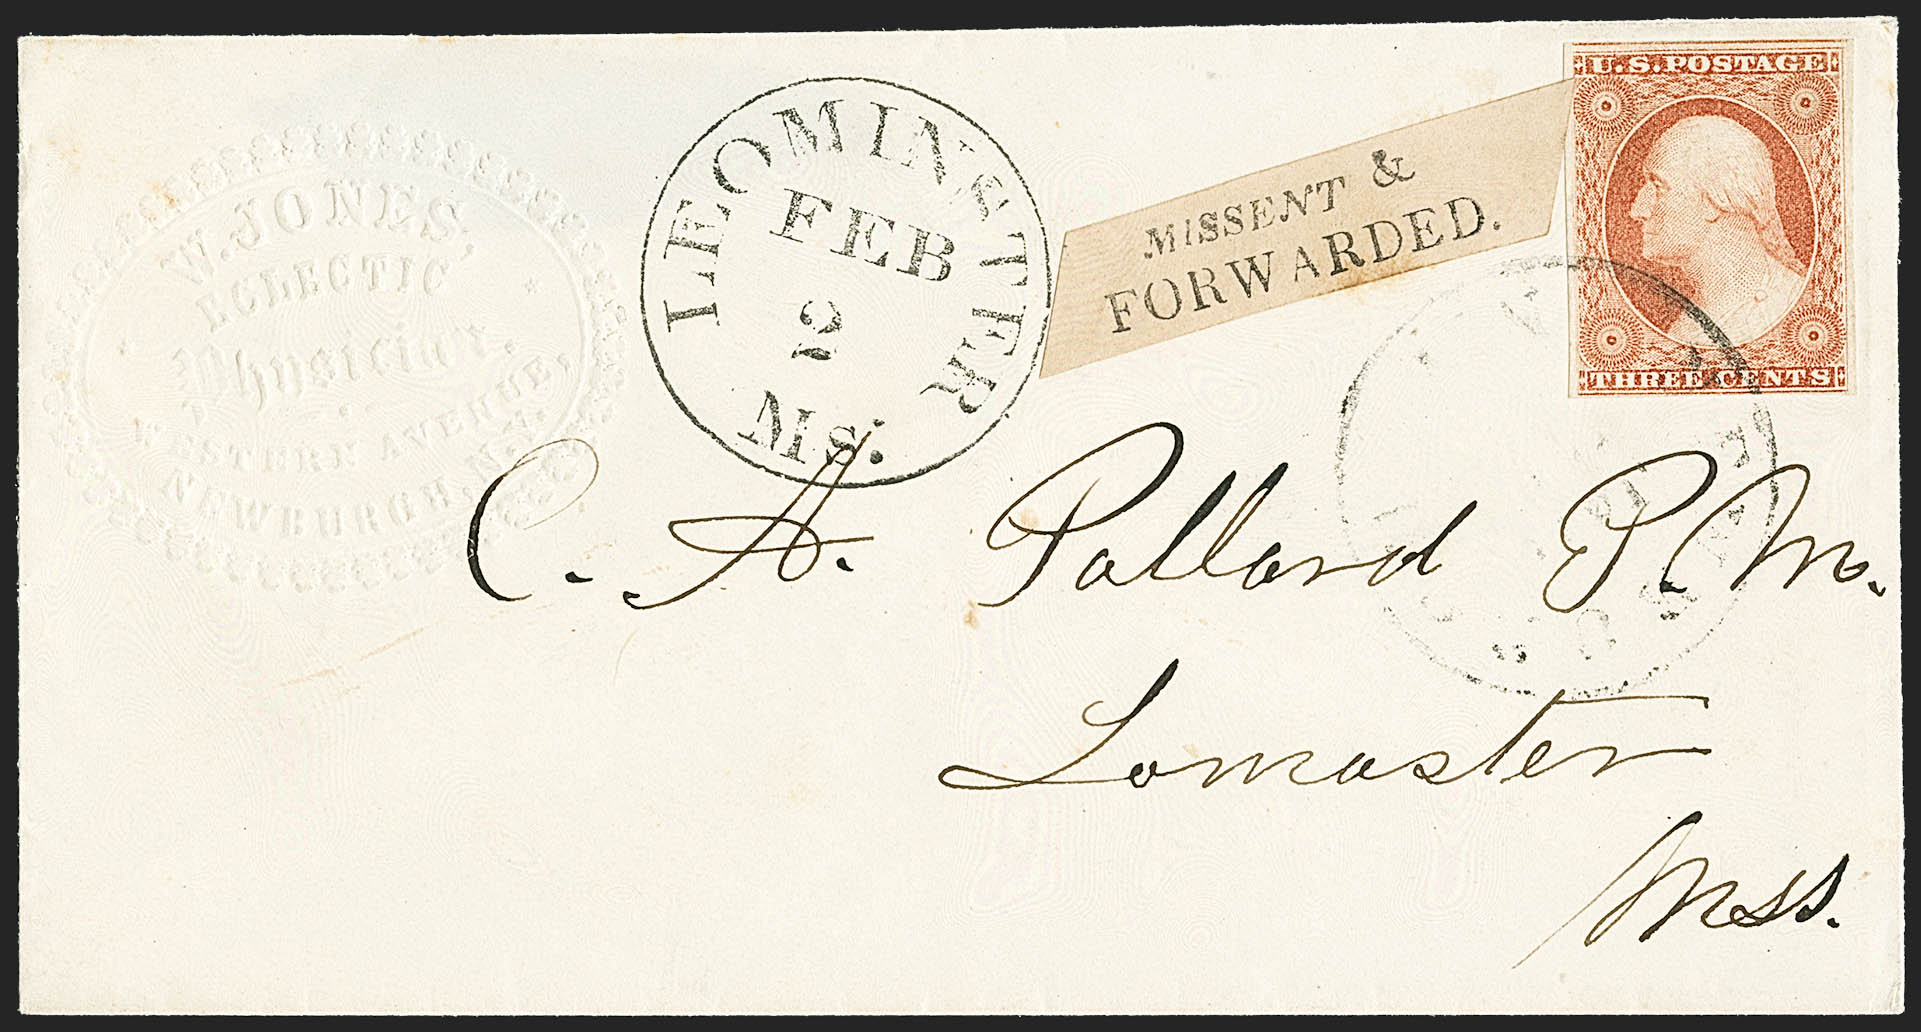 W. JONES,
ECLECTIC
Physician.
WESTERN AVENUE,
NEWBURGH, N.Y.
LEOMINSTER
FEB
2
Ms.
MISSENT &
FORWARDED.
U.S. POSTAGE
THREE CENTS
C. A. Pollard P.M.
Lomaster
Mss.